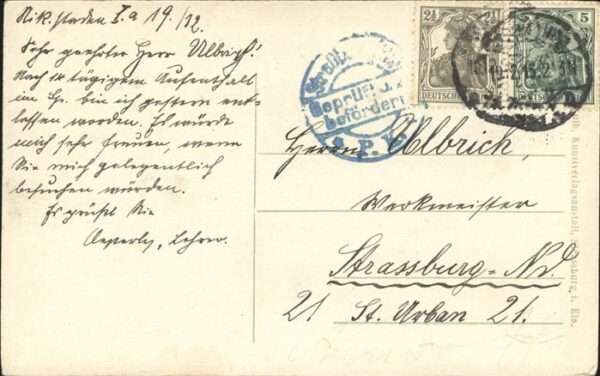 Nik. staden I.a 19./12.
Sehr geehrter Herr Ulbrich!
Nach 14 tägigem Aufenthalt
im Sp. bin ich gestern ent-
lassen worden. Es würde
mich sehr freuen, wenn
Sie mich gelegentlich
besuchen würden.
Es grüßt Sie
Lehrer.
2½
5
Geprüft u. z.
befördern
P.
Herrn Ulbrich,
Werkmeister
Strassburg-Nd.
21 St. Urban 21.
Kunstverlagsanstalt, Strassburg i. Els.